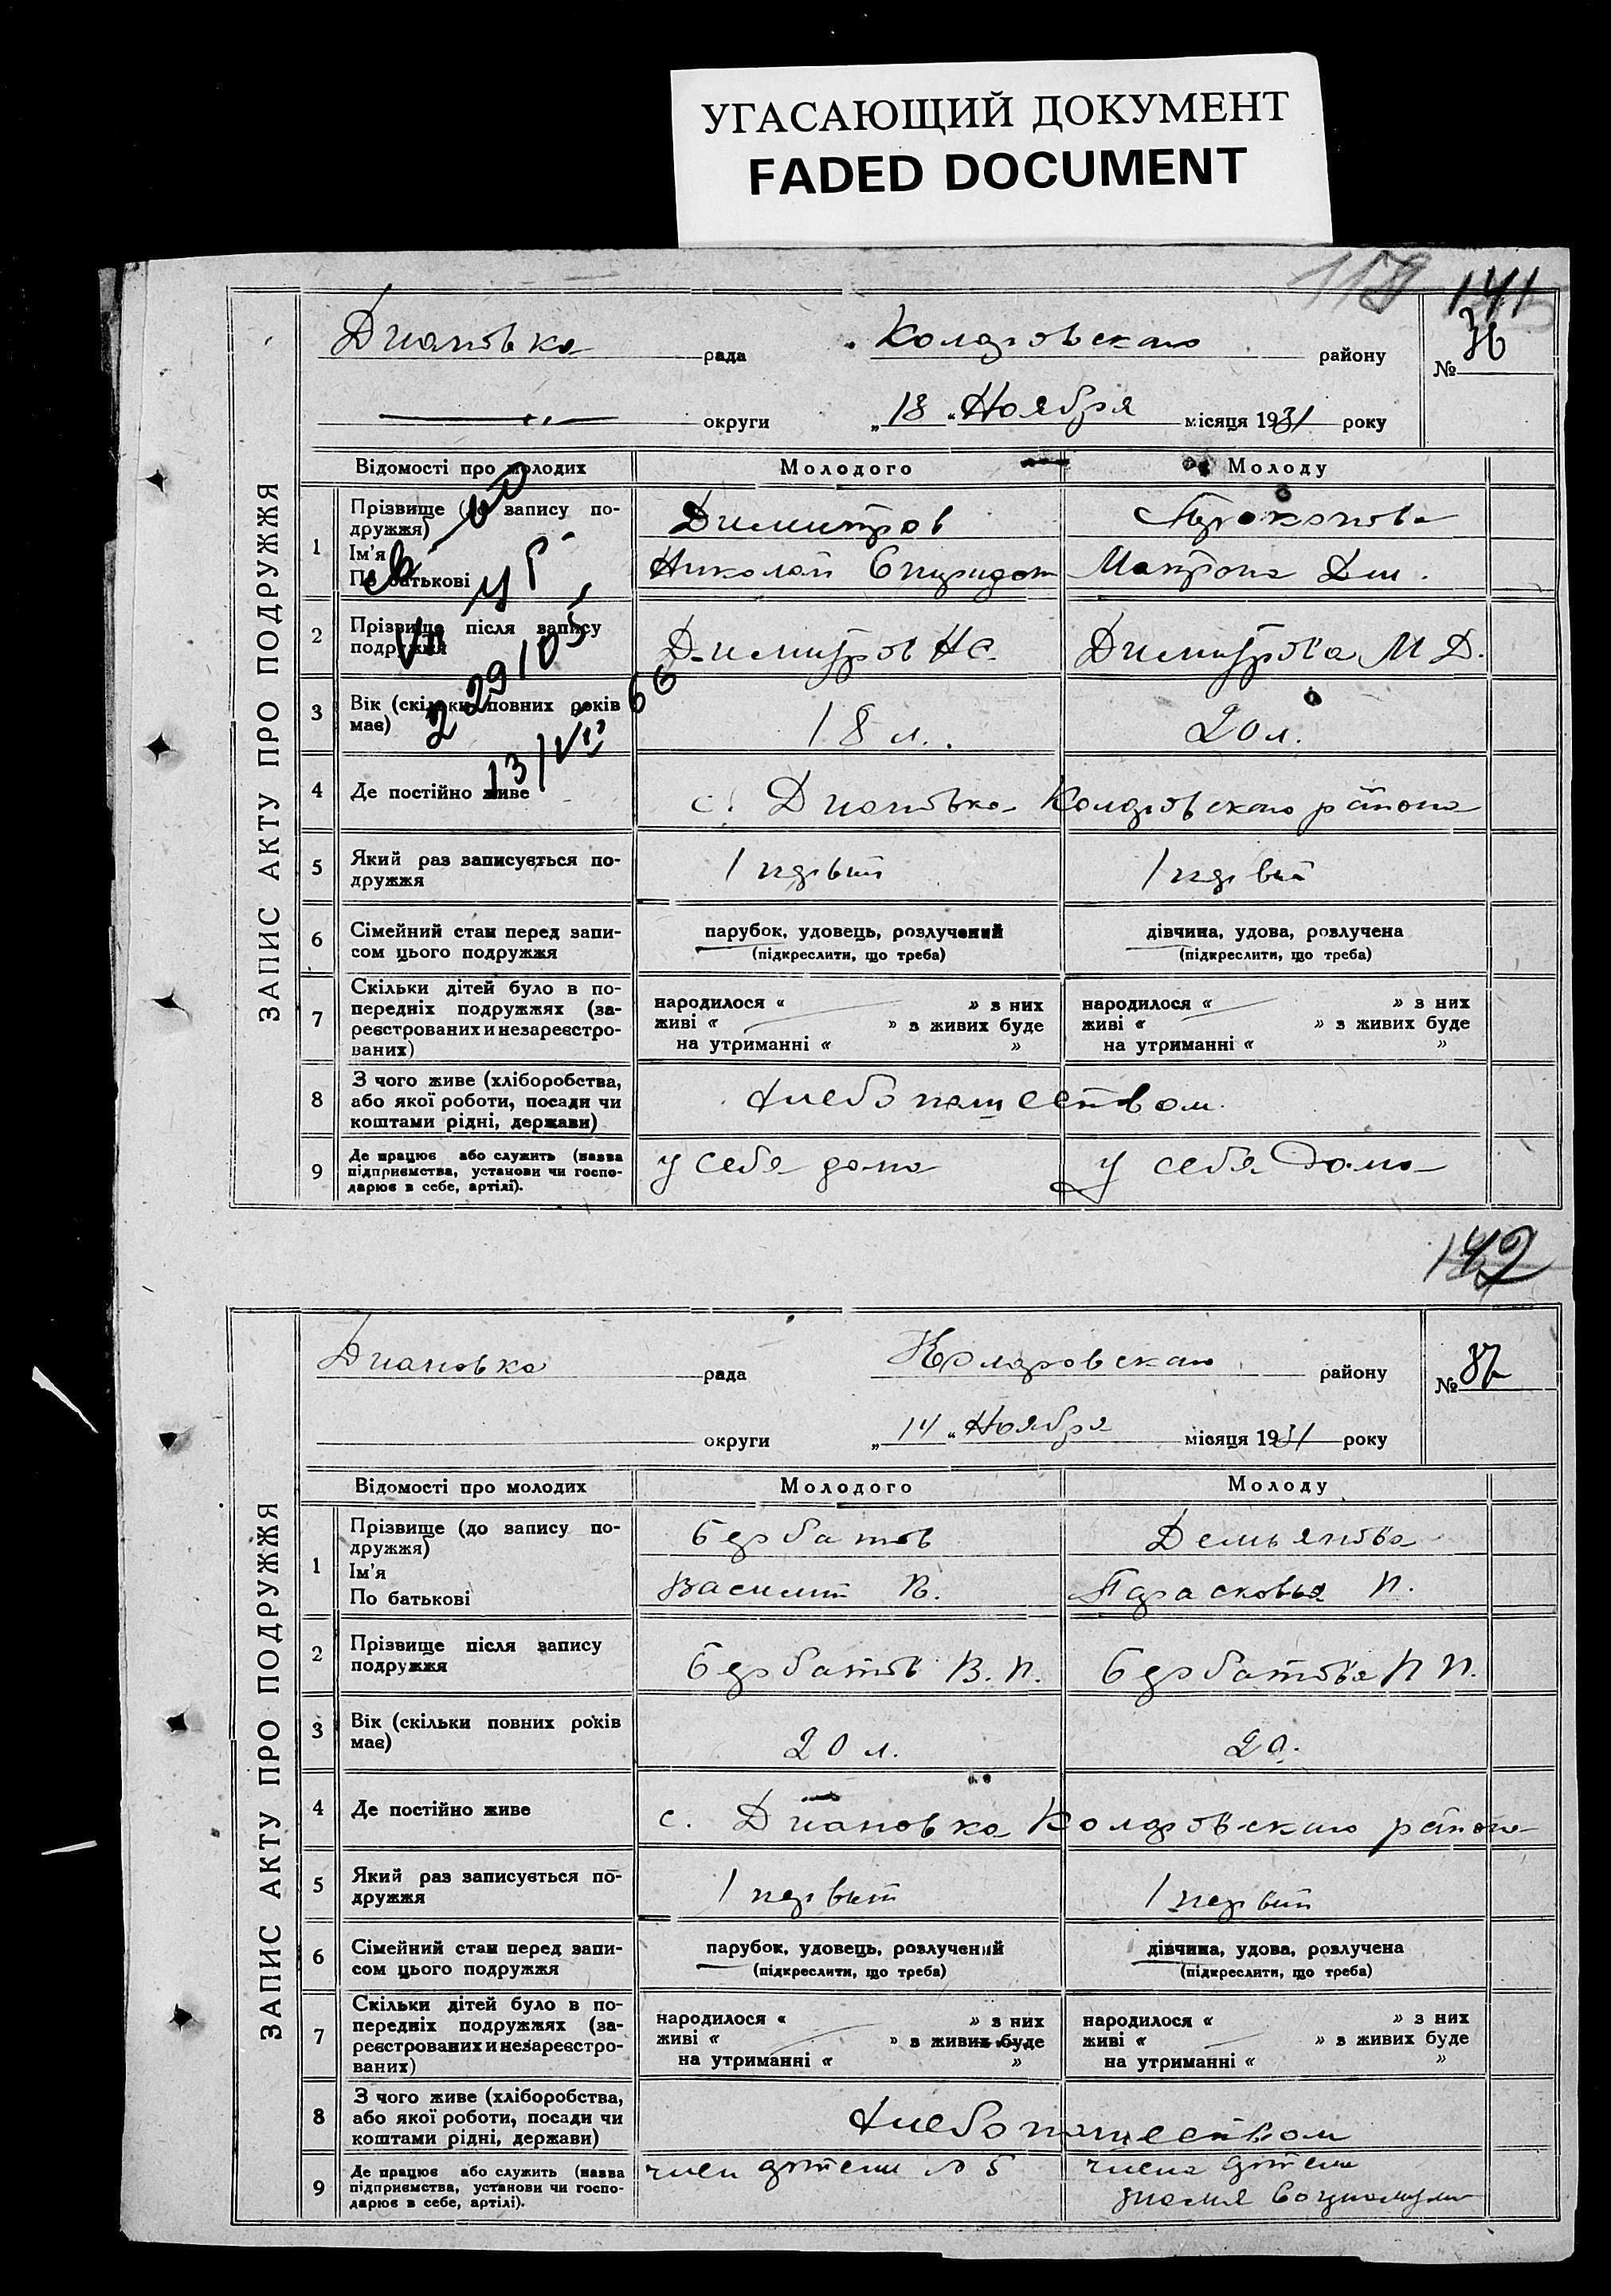 УГАСАЮЩИЙ ДОКУМЕНТ
FADED DOCUMENT
141
ЗАПИС АКТУ ПРО ПОДРУЖЖЯ
Диановка рада Коларовского району № 36
округи „18“ Ноября місяця 1931 року
Відомості про молодих Молодого Молоду
1 Прізвище (до запису по-
дружжя)
Ім'я
По батькові
Димитров
Николай Спиридон
Прокопова
Матрона Дм.
2 Прізвище після запису
подружжя
Димитров Н С. Димитрова М Д.
3 Вік (скільки повних років
має)
18 л. 20 л.
4 Де постійно живе с. Диановка Коларовского района
5 Який раз записується по-
дружжя
1 первый 1 первый
6 Сімейний стан перед запи-
сом цього подружжя
парубок, удовець, розлучений
(підкреслити, що треба)
дівчина, удова, розлучена
(підкреслити, що треба)
7 Скільки дітей було в по-
передніх подружжях (за-
реєстрованих и незареєстро-
ваних)
народилося « » з них
живі « » з живих буде
на утриманні « »
народилося « » з них
живі « » з живих буде
на утриманні « »
8 З чого живе (хліборобства,
або якої роботи, посади чи
коштами рідні, держави)
Хлебопашеством
9 Де працює або служить (назва
підприємства, установи чи госпо-
дарює в себе, артілі).
у себя дома у себя дома
142
ЗАПИС АКТУ ПРО ПОДРУЖЖЯ
Диановка рада Коларовского району № 37
округи „14“ Ноября місяця 1931 року
Відомості про молодих Молодого Молоду
1 Прізвище (до запису по-
дружжя)
Ім'я
По батькові
Бербатов
Василий П.
Демьянова
Парасковья П.
2 Прізвище після запису
подружжя
Бербатов В. П. Бербатова П П.
3 Вік (скільки повних років
має)
20 л. 20.
4 Де постійно живе с. Диановка Коларовского района
5 Який раз записується по-
дружжя
1 первый 1 первый
6 Сімейний стан перед запи-
сом цього подружжя
парубок, удовець, розлучений
(підкреслити, що треба)
дівчина, удова, розлучена
(підкреслити, що треба)
7 Скільки дітей було в по-
передніх подружжях (за-
реєстрованих и незареєстро-
ваних)
народилося « » з них
живі « » з живих буде
на утриманні « »
народилося « » з них
живі « » з живих буде
на утриманні « »
8 З чого живе (хліборобства,
або якої роботи, посади чи
коштами рідні, держави)
Хлебопашеством
9 Де працює або служить (назва
підприємства, установи чи госпо-
дарює в себе, артілі).
член артели № 5
члена артели